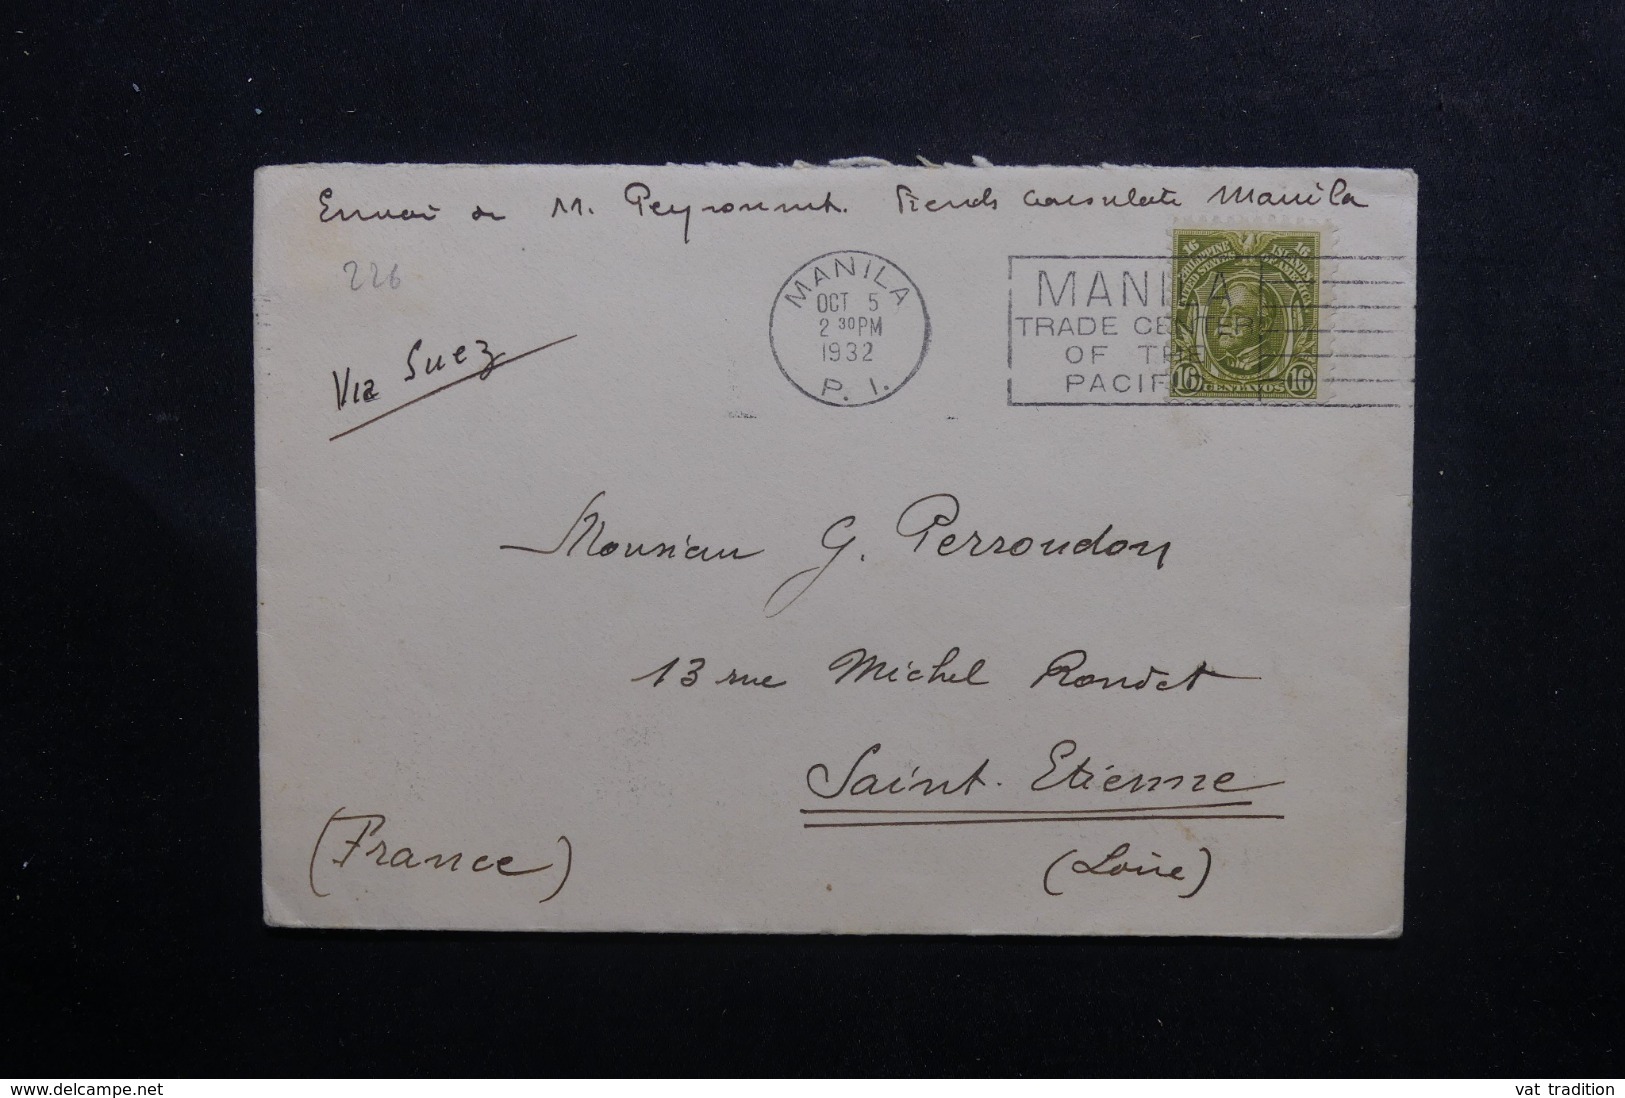 Envoi de M. Peyronnet. French Consulate Manila
226
Via Suez
MANILA
OCT 5
2 30 PM
1932
P. I.
MANILA
TRADE CENTER
OF THE
PACIF
16 16
PHILIPPINE ISLANDS
UNITED STATES OF AMERICA
16 CENTAVOS 16
Monsieur G. Perroudon
13 rue Michel Rondet
Saint-Etienne
(Loire)
(France)
www.delcampe.net
vat tradition